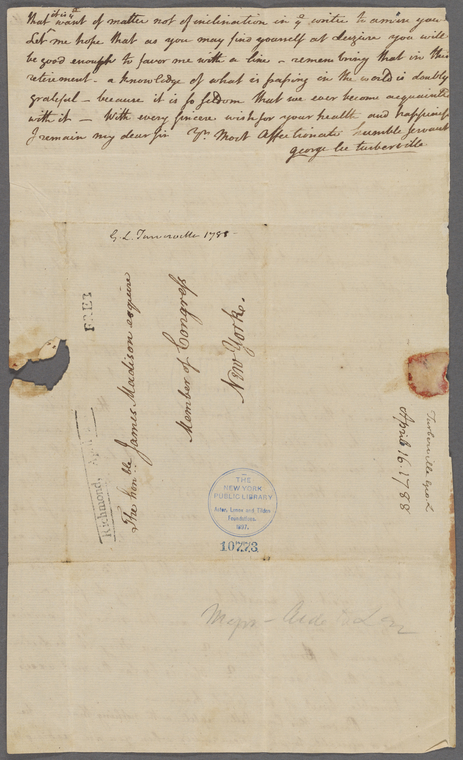 it is a
that want of matter not of inclination in yr. writer to amuse you
Let me hope that as you may find yourself at leizure you will
be good enough to favor me with a line - remembring that in this
retirement - a knowledge of what is passing in the world is doubly
grateful - because it is so seldom that we ever become acquainted
with it - With every sincere wish for your health and happiness
I remain my dear Sir Yr. Most Affectionate humble servant
george lee turberville
G. L. Turberville 1788
FREE
Richmond, April
The honble. James Madison esquire
Member of Congress
New York.
Turberville Geo L
April 16. 1788
THE
NEW YORK
PUBLIC LIBRARY
Astor, Lenox and Tilden
Foundations.
1897.
10773